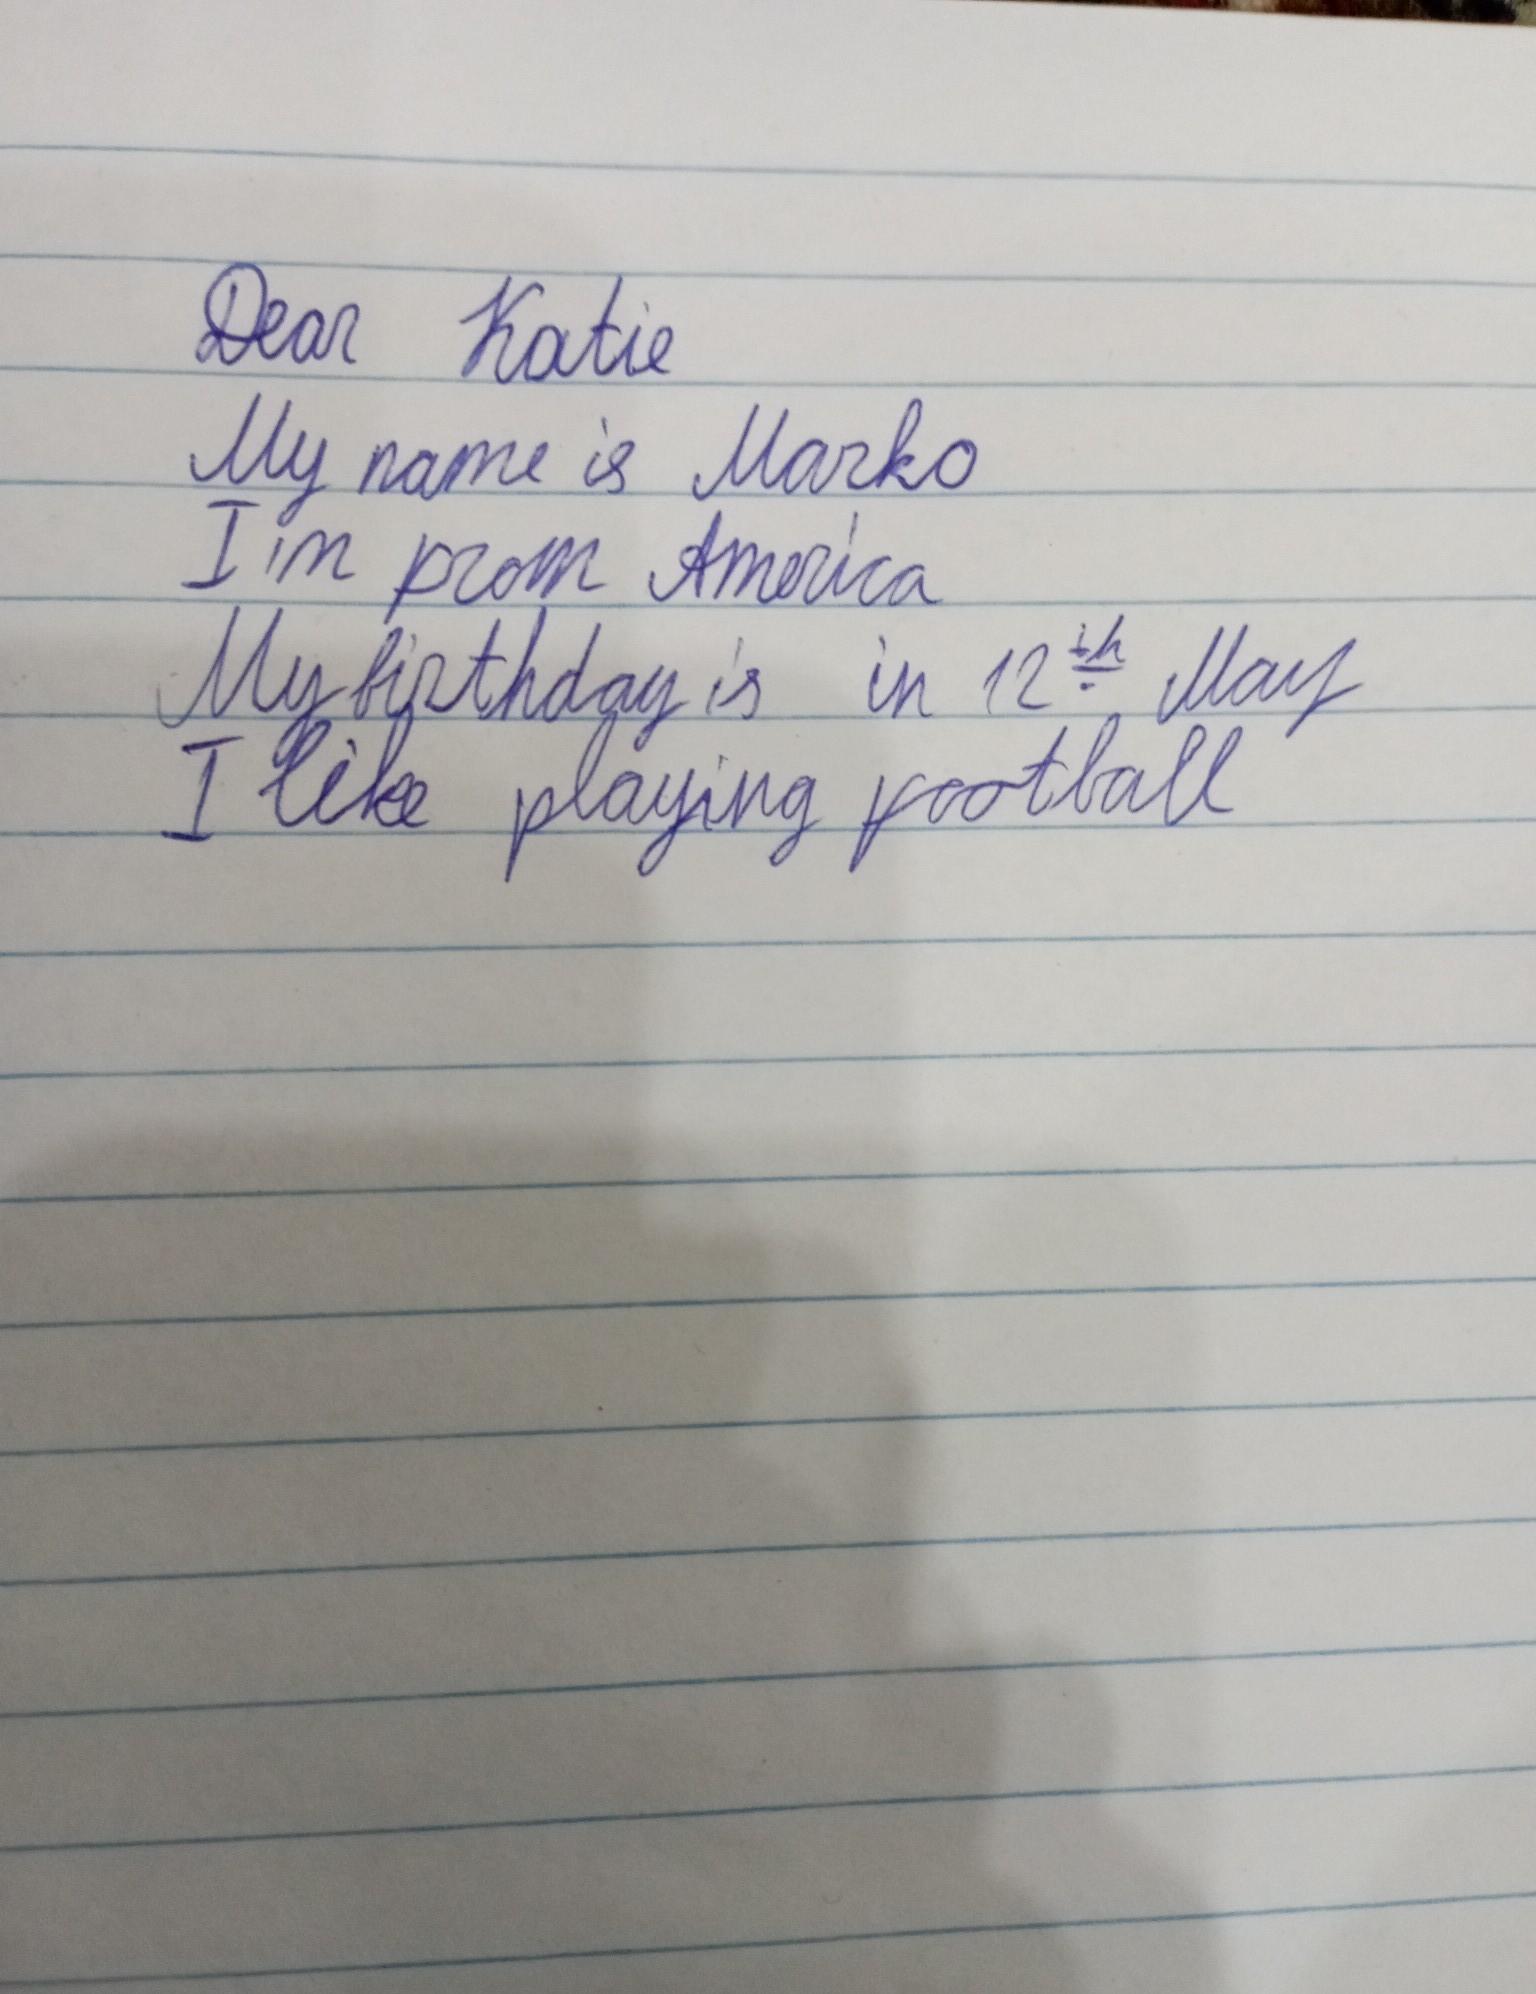 Dear Katie
My name is Marko
I im prom America
My birthday is in 12th May
I like playing football